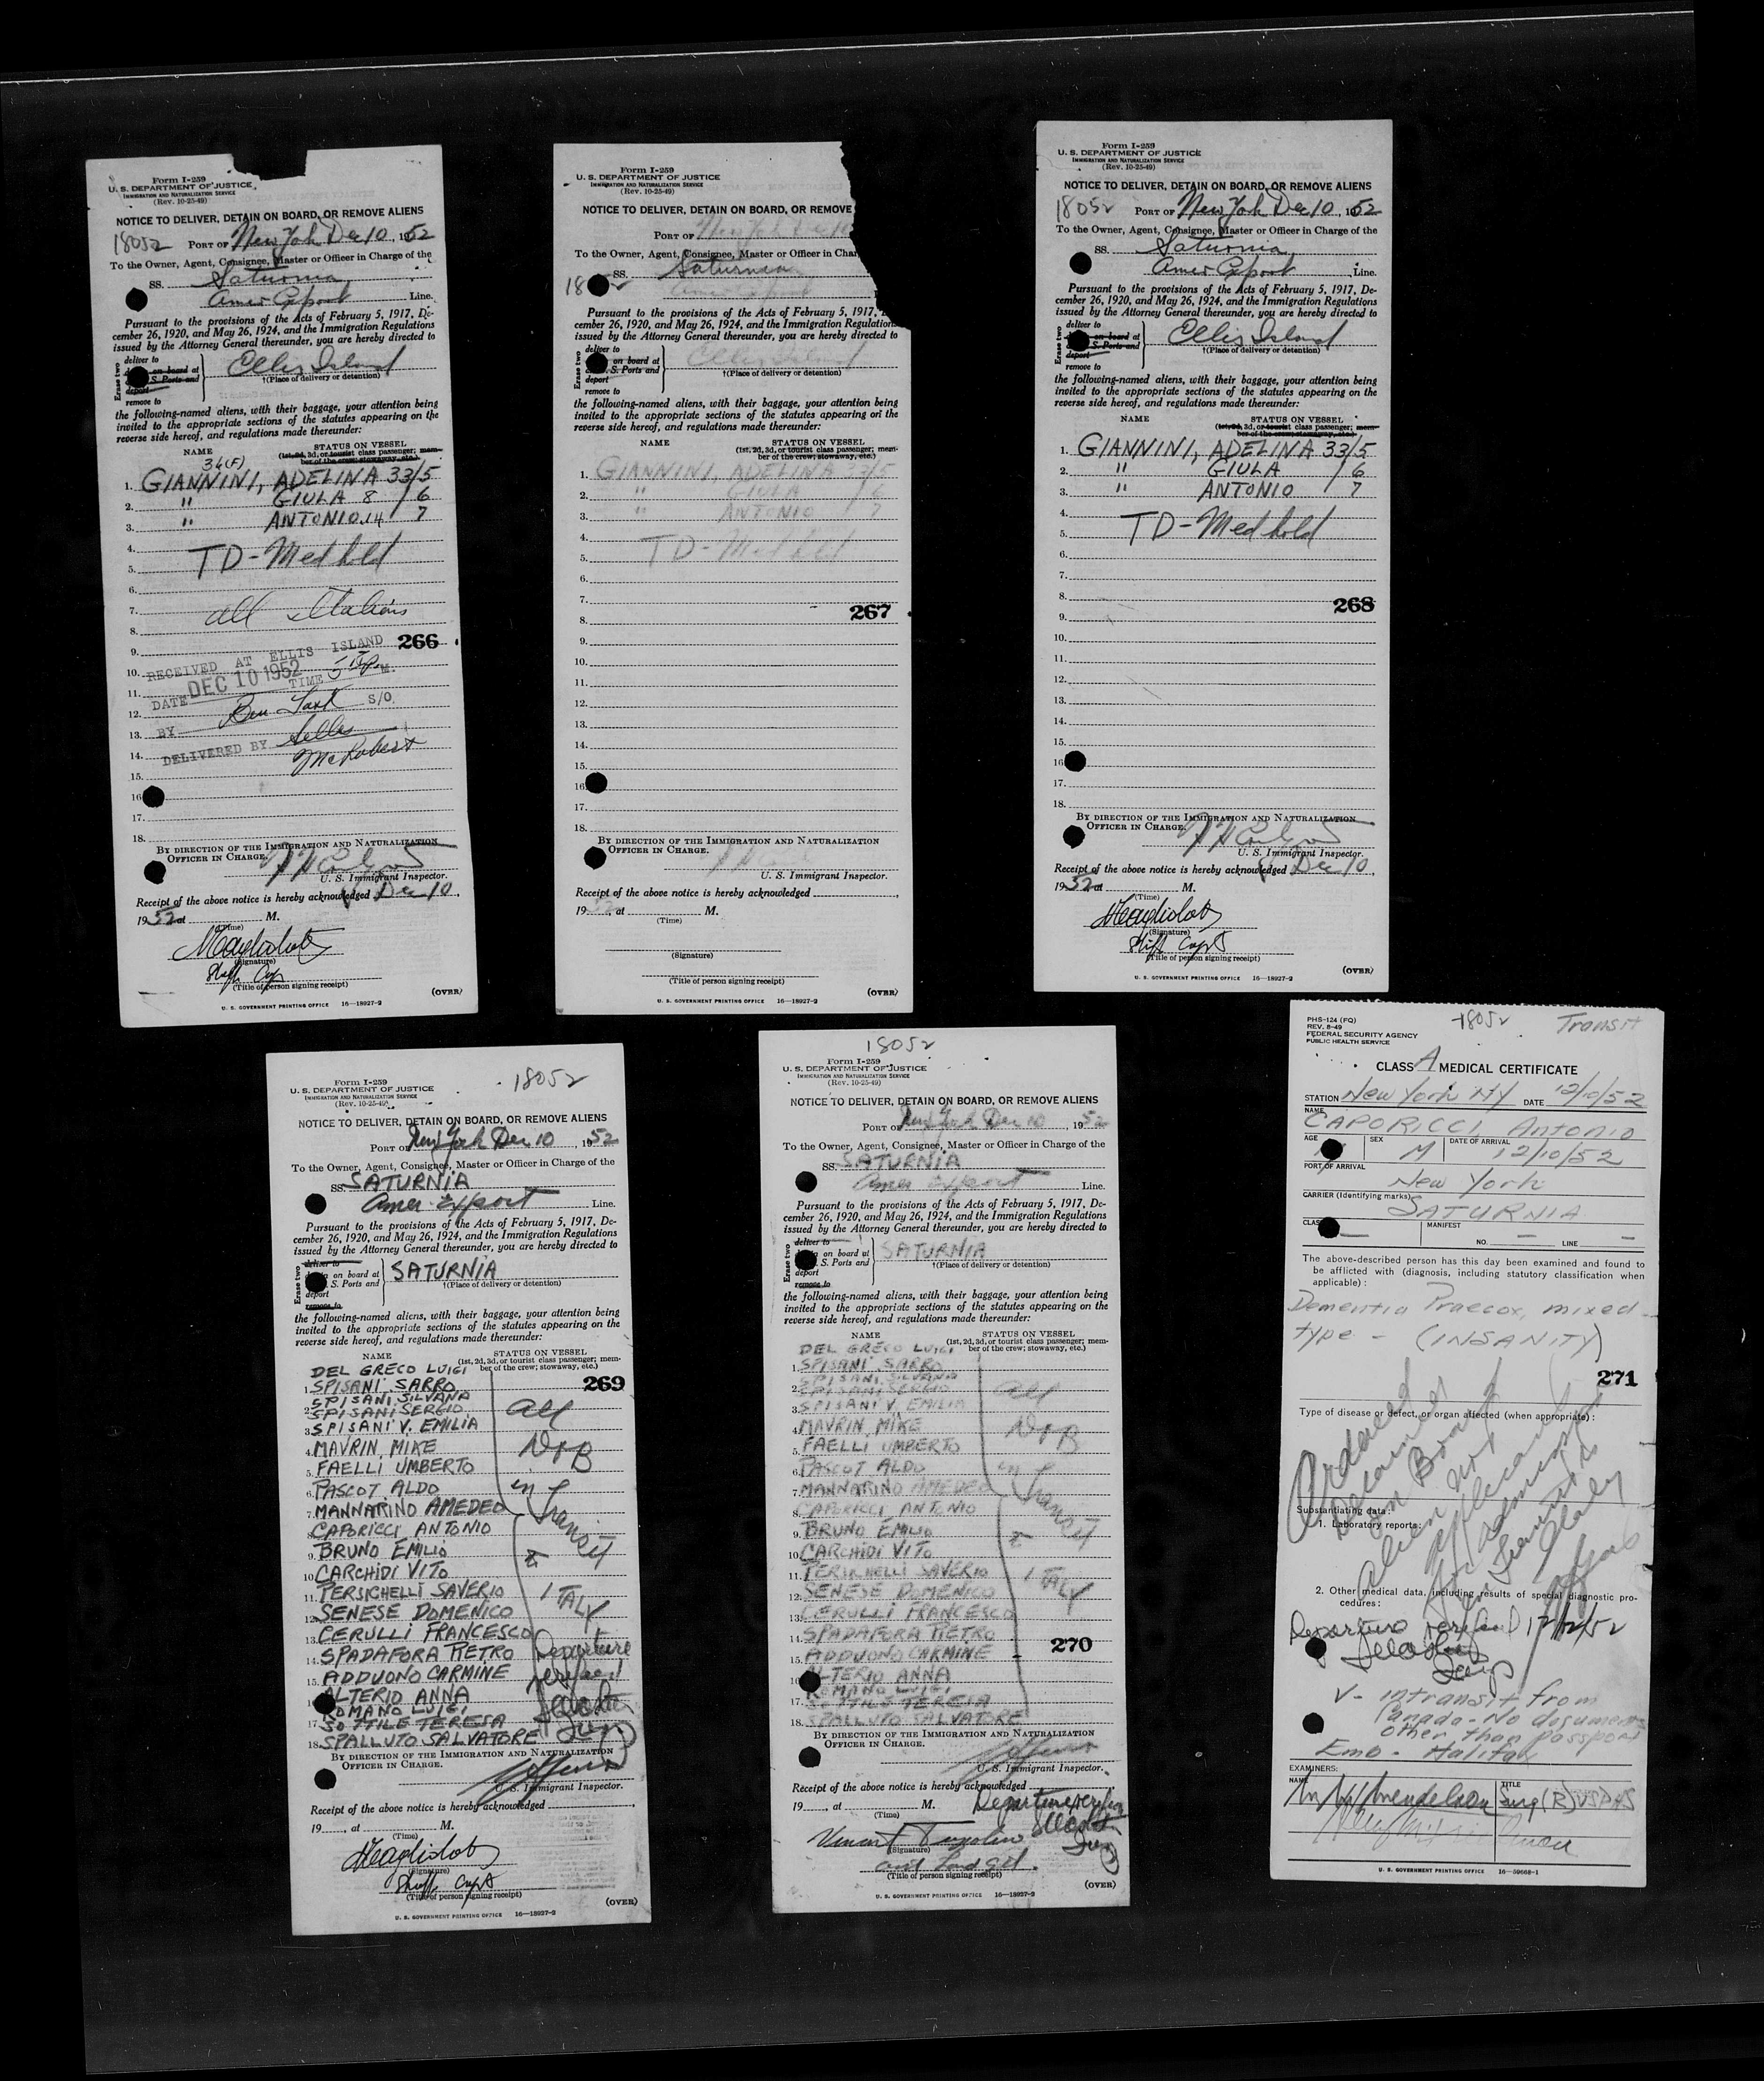 Form I-259
U. S. DEPARTMENT OF JUSTICE
IMMIGRATION AND NATURALIZATION SERVICE
(Rev. 10-25-49)
NOTICE TO DELIVER, DETAIN ON BOARD, OR REMOVE ALIENS
18052 PORT OF New York Dec 10, 1952
To the Owner, Agent, Consignee, Master or Officer in Charge of the
SS. Saturnia
Amer Export Line.
Pursuant to the provisions of the Acts of February 5, 1917, De-
cember 26, 1920, and May 26, 1924, and the Immigration Regulations
issued by the Attorney General thereunder, you are hereby directed to
Erase two
deliver to
on board at
S. Ports and
deport
remove to
Ellis Island
†(Place of delivery or detention)
the following-named aliens, with their baggage, your attention being
invited to the appropriate sections of the statutes appearing on the
reverse side hereof, and regulations made thereunder:
NAME STATUS ON VESSEL
(1st, 2d, 3d, or tourist class passenger; mem-
ber of the crew; stowaway, etc.)
34(F)
1. GIANNINI, ADELINA 33/5
2. " GIULA 8 / 6
3. " ANTONIO 14 7
4.
5. TD - Med hold
6.
7. all Italians
8.
266
9.
RECEIVED AT ELLIS ISLAND
10.
DATE DEC 10 1952 TIME M.
11.
12.
BY S/O.
13.
DELIVERED BY
14.
McRobert
15.
16.
17.
18.
BY DIRECTION OF THE IMMIGRATION AND NATURALIZATION
OFFICER IN CHARGE.
U. S. Immigrant Inspector.
Receipt of the above notice is hereby acknowledged Dec 10,
1952 at M.
(Time)
(Signature)
(Title of person signing receipt)
(OVER)
U. S. GOVERNMENT PRINTING OFFICE 16—18927-2
Form I-259
U. S. DEPARTMENT OF JUSTICE
IMMIGRATION AND NATURALIZATION SERVICE
(Rev. 10-25-49)
NOTICE TO DELIVER, DETAIN ON BOARD, OR REMOVE
PORT OF New York Dec 10
To the Owner, Agent, Consignee, Master or Officer in Char
SS. Saturnia
18
Amer Export
Pursuant to the provisions of the Acts of February 5, 1917,
cember 26, 1920, and May 26, 1924, and the Immigration Regulation
issued by the Attorney General thereunder, you are hereby directed to
Erase two
deliver to
on board at
S. Ports and
deport
remove to
Ellis Island
†(Place of delivery or detention)
the following-named aliens, with their baggage, your attention being
invited to the appropriate sections of the statutes appearing on the
reverse side hereof, and regulations made thereunder:
NAME STATUS ON VESSEL
(1st, 2d, 3d, or tourist class passenger; mem-
ber of the crew; stowaway, etc.)
1. GIANNINI, ADELINA /5
2. " GIULA / 6
3. " ANTONIO / 7
4.
5. TD - Med hold
6.
7.
267
8.
9.
10.
11.
12.
13.
14.
15.
16.
17.
18.
BY DIRECTION OF THE IMMIGRATION AND NATURALIZATION
OFFICER IN CHARGE.
U. S. Immigrant Inspector.
Receipt of the above notice is hereby acknowledged
1952, at M.
(Time)
(Signature)
(Title of person signing receipt)
(OVER)
U. S. GOVERNMENT PRINTING OFFICE 16—18927-2
Form I-259
U. S. DEPARTMENT OF JUSTICE
IMMIGRATION AND NATURALIZATION SERVICE
(Rev. 10-25-49)
NOTICE TO DELIVER, DETAIN ON BOARD, OR REMOVE ALIENS
18052 PORT OF New York Dec 10, 1952
To the Owner, Agent, Consignee, Master or Officer in Charge of the
SS. Saturnia
Amer Export Line.
Pursuant to the provisions of the Acts of February 5, 1917, De-
cember 26, 1920, and May 26, 1924, and the Immigration Regulations
issued by the Attorney General thereunder, you are hereby directed to
Erase two
deliver to
on board at
S. Ports and
deport
remove to
Ellis Island
†(Place of delivery or detention)
the following-named aliens, with their baggage, your attention being
invited to the appropriate sections of the statutes appearing on the
reverse side hereof, and regulations made thereunder:
NAME STATUS ON VESSEL
(1st, 2d, 3d, or tourist class passenger; mem-
ber of the crew; stowaway, etc.)
1. GIANNINI, ADELINA 33/5
2. " GIULA / 6
3. " ANTONIO / 7
4.
5. TD - Med hold
6.
7.
8.
268
9.
10.
11.
12.
13.
14.
15.
16.
17.
18.
BY DIRECTION OF THE IMMIGRATION AND NATURALIZATION
OFFICER IN CHARGE.
U. S. Immigrant Inspector.
Receipt of the above notice is hereby acknowledged Dec 10,
1952 at M.
(Time)
(Signature)
Capt
(Title of person signing receipt)
(OVER)
U. S. GOVERNMENT PRINTING OFFICE 16—18927-2
18052
Form I-259
U. S. DEPARTMENT OF JUSTICE
IMMIGRATION AND NATURALIZATION SERVICE
(Rev. 10-25-49)
NOTICE TO DELIVER, DETAIN ON BOARD, OR REMOVE ALIENS
PORT OF New York Dec 10, 1952
To the Owner, Agent, Consignee, Master or Officer in Charge of the
SS. SATURNIA
Amer Export Line.
Pursuant to the provisions of the Acts of February 5, 1917, De-
cember 26, 1920, and May 26, 1924, and the Immigration Regulations
issued by the Attorney General thereunder, you are hereby directed to
Erase two
deliver to
on board at
S. Ports and
deport
remove to
SATURNIA
†(Place of delivery or detention)
the following-named aliens, with their baggage, your attention being
invited to the appropriate sections of the statutes appearing on the
reverse side hereof, and regulations made thereunder:
NAME STATUS ON VESSEL
(1st, 2d, 3d, or tourist class passenger; mem-
ber of the crew; stowaway, etc.)
DEL GRECO LUIGI
269
1. SPISANI SARRO
SPISANI SILVANA
2. SPISANI SERGIO All
3. SPISANI V. EMILIA
4. MAVRIN MIKE
5. FAELLI UMBERTO
6. PASCOT ALDO in
7. MANNARINO AMEDEO Transit
8. CAPORICCI ANTONIO
9. BRUNO EMILIO
10. CARCHIDI VITO
11. PERSICHELLI SAVERIO ITALY
12. SENESE DOMENICO
13. CERULLI FRANCESCO
14. SPADAFORA PIETRO Departure
15. ADDUONO CARMINE verified
16. ALTERIO ANNA
ROMANO LUIGI
17. SOTTILE TERESA
18. SPALLUTO SALVATORE
BY DIRECTION OF THE IMMIGRATION AND NATURALIZATION
OFFICER IN CHARGE.
U. S. Immigrant Inspector.
Receipt of the above notice is hereby acknowledged
19 , at M.
(Time)
(Signature)
Capt
(Title of person signing receipt)
(OVER)
U. S. GOVERNMENT PRINTING OFFICE 16—18927-2
18052
Form I-259
U. S. DEPARTMENT OF JUSTICE
IMMIGRATION AND NATURALIZATION SERVICE
(Rev. 10-25-49)
NOTICE TO DELIVER, DETAIN ON BOARD, OR REMOVE ALIENS
PORT OF New York Dec 10, 1952
To the Owner, Agent, Consignee, Master or Officer in Charge of the
SS. SATURNIA
Amer Export Line.
Pursuant to the provisions of the Acts of February 5, 1917, De-
cember 26, 1920, and May 26, 1924, and the Immigration Regulations
issued by the Attorney General thereunder, you are hereby directed to
Erase two
deliver to
on board at
S. Ports and
deport
remove to
SATURNIA
†(Place of delivery or detention)
the following-named aliens, with their baggage, your attention being
invited to the appropriate sections of the statutes appearing on the
reverse side hereof, and regulations made thereunder:
NAME STATUS ON VESSEL
(1st, 2d, 3d, or tourist class passenger; mem-
ber of the crew; stowaway, etc.)
DEL GRECO LUIGI
1. SPISANI SARRO
SPISANI SILVANA
2. SPISANI SERGIO All
3. SPISANI V. EMILIA
4. MAVRIN MIKE
5. FAELLI UMBERTO
6. PASCOT ALDO in
7. MANNARINO AMEDEO Transit
8. CAPORICCI ANTONIO
9. BRUNO EMILIO
10. CARCHIDI VITO
11. PERSICHELLI SAVERIO ITALY
12. SENESE DOMENICO
13. CERULLI FRANCESCO
14. SPADAFORA PIETRO
270
15. ADDUONO CARMINE
16. ALTERIO ANNA
ROMANO LUIGI
17. SOTTILE TERESA
18. SPALLUTO SALVATORE
BY DIRECTION OF THE IMMIGRATION AND NATURALIZATION
OFFICER IN CHARGE.
U. S. Immigrant Inspector.
Receipt of the above notice is hereby acknowledged
19 , at M. Departure verified
(Time)
Vincent
(Signature)
(Title of person signing receipt)
(OVER)
U. S. GOVERNMENT PRINTING OFFICE 16—18927-2
PHS-124 (FQ) 18052 Transit
REV. 8-49
FEDERAL SECURITY AGENCY
PUBLIC HEALTH SERVICE
CLASS A MEDICAL CERTIFICATE
STATION New York NY DATE 12/10/52
NAME
CAPORICCI, Antonio
AGE SEX M DATE OF ARRIVAL 12/10/52
PORT OF ARRIVAL
New York
CARRIER (Identifying marks)
SATURNIA
CLASS — MANIFEST
NO. — LINE —
The above-described person has this day been examined and found to
be afflicted with (diagnosis, including statutory classification when
applicable):
Dementia Praecox, mixed
type - (INSANITY)
271
Type of disease or defect, or organ affected (when appropriate):
Ordered
Detained
on Board
Alien not
applicant
for admission
Substantiating data:
1. Laboratory reports:
2. Other medical data, including results of special diagnostic pro-
cedures:
Departure verified 12/12/52
V - intransit from
Canada - No documents
other than passport
Emb - Halifax
EXAMINERS:
NAME TITLE
Mendelson Surg (R) USPHS
U. S. GOVERNMENT PRINTING OFFICE 16—59668-1